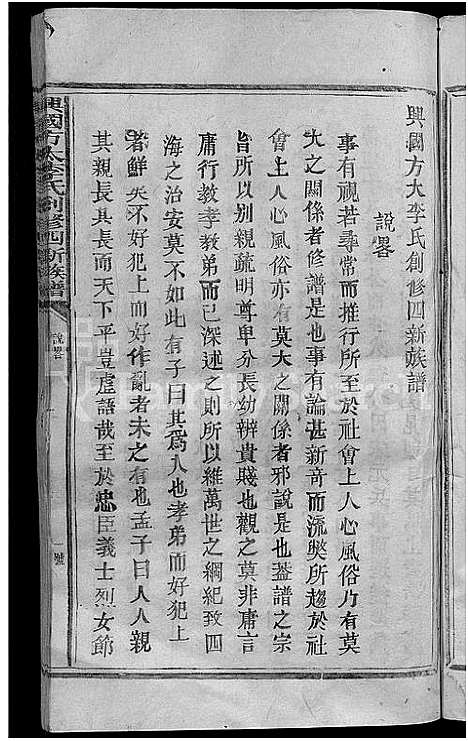 興國方大李氏創修四新族譜
說畧
事有視若尋常而推行所至於社會上人心風俗乃有莫
大之關係者修譜是也事有論甚新竒而流獘所趨於社
會上人心風俗亦有莫大之關係者邪說是也葢譜之宗
旨所以別親疏明尊卑分長幼辨貴賤也觀之莫非庸言
庸行教孝教弟而已深述之則所以維萬世之綱紀致四
海之治安莫不如此有子曰其爲人也孝弟而好犯上
者鮮矣不好犯上而好作亂者未之有也孟子曰人人親
其親長其長而天下平豈虛語哉至於忠臣義士烈女節
興國方大李氏創修四新族譜
說畧
一號